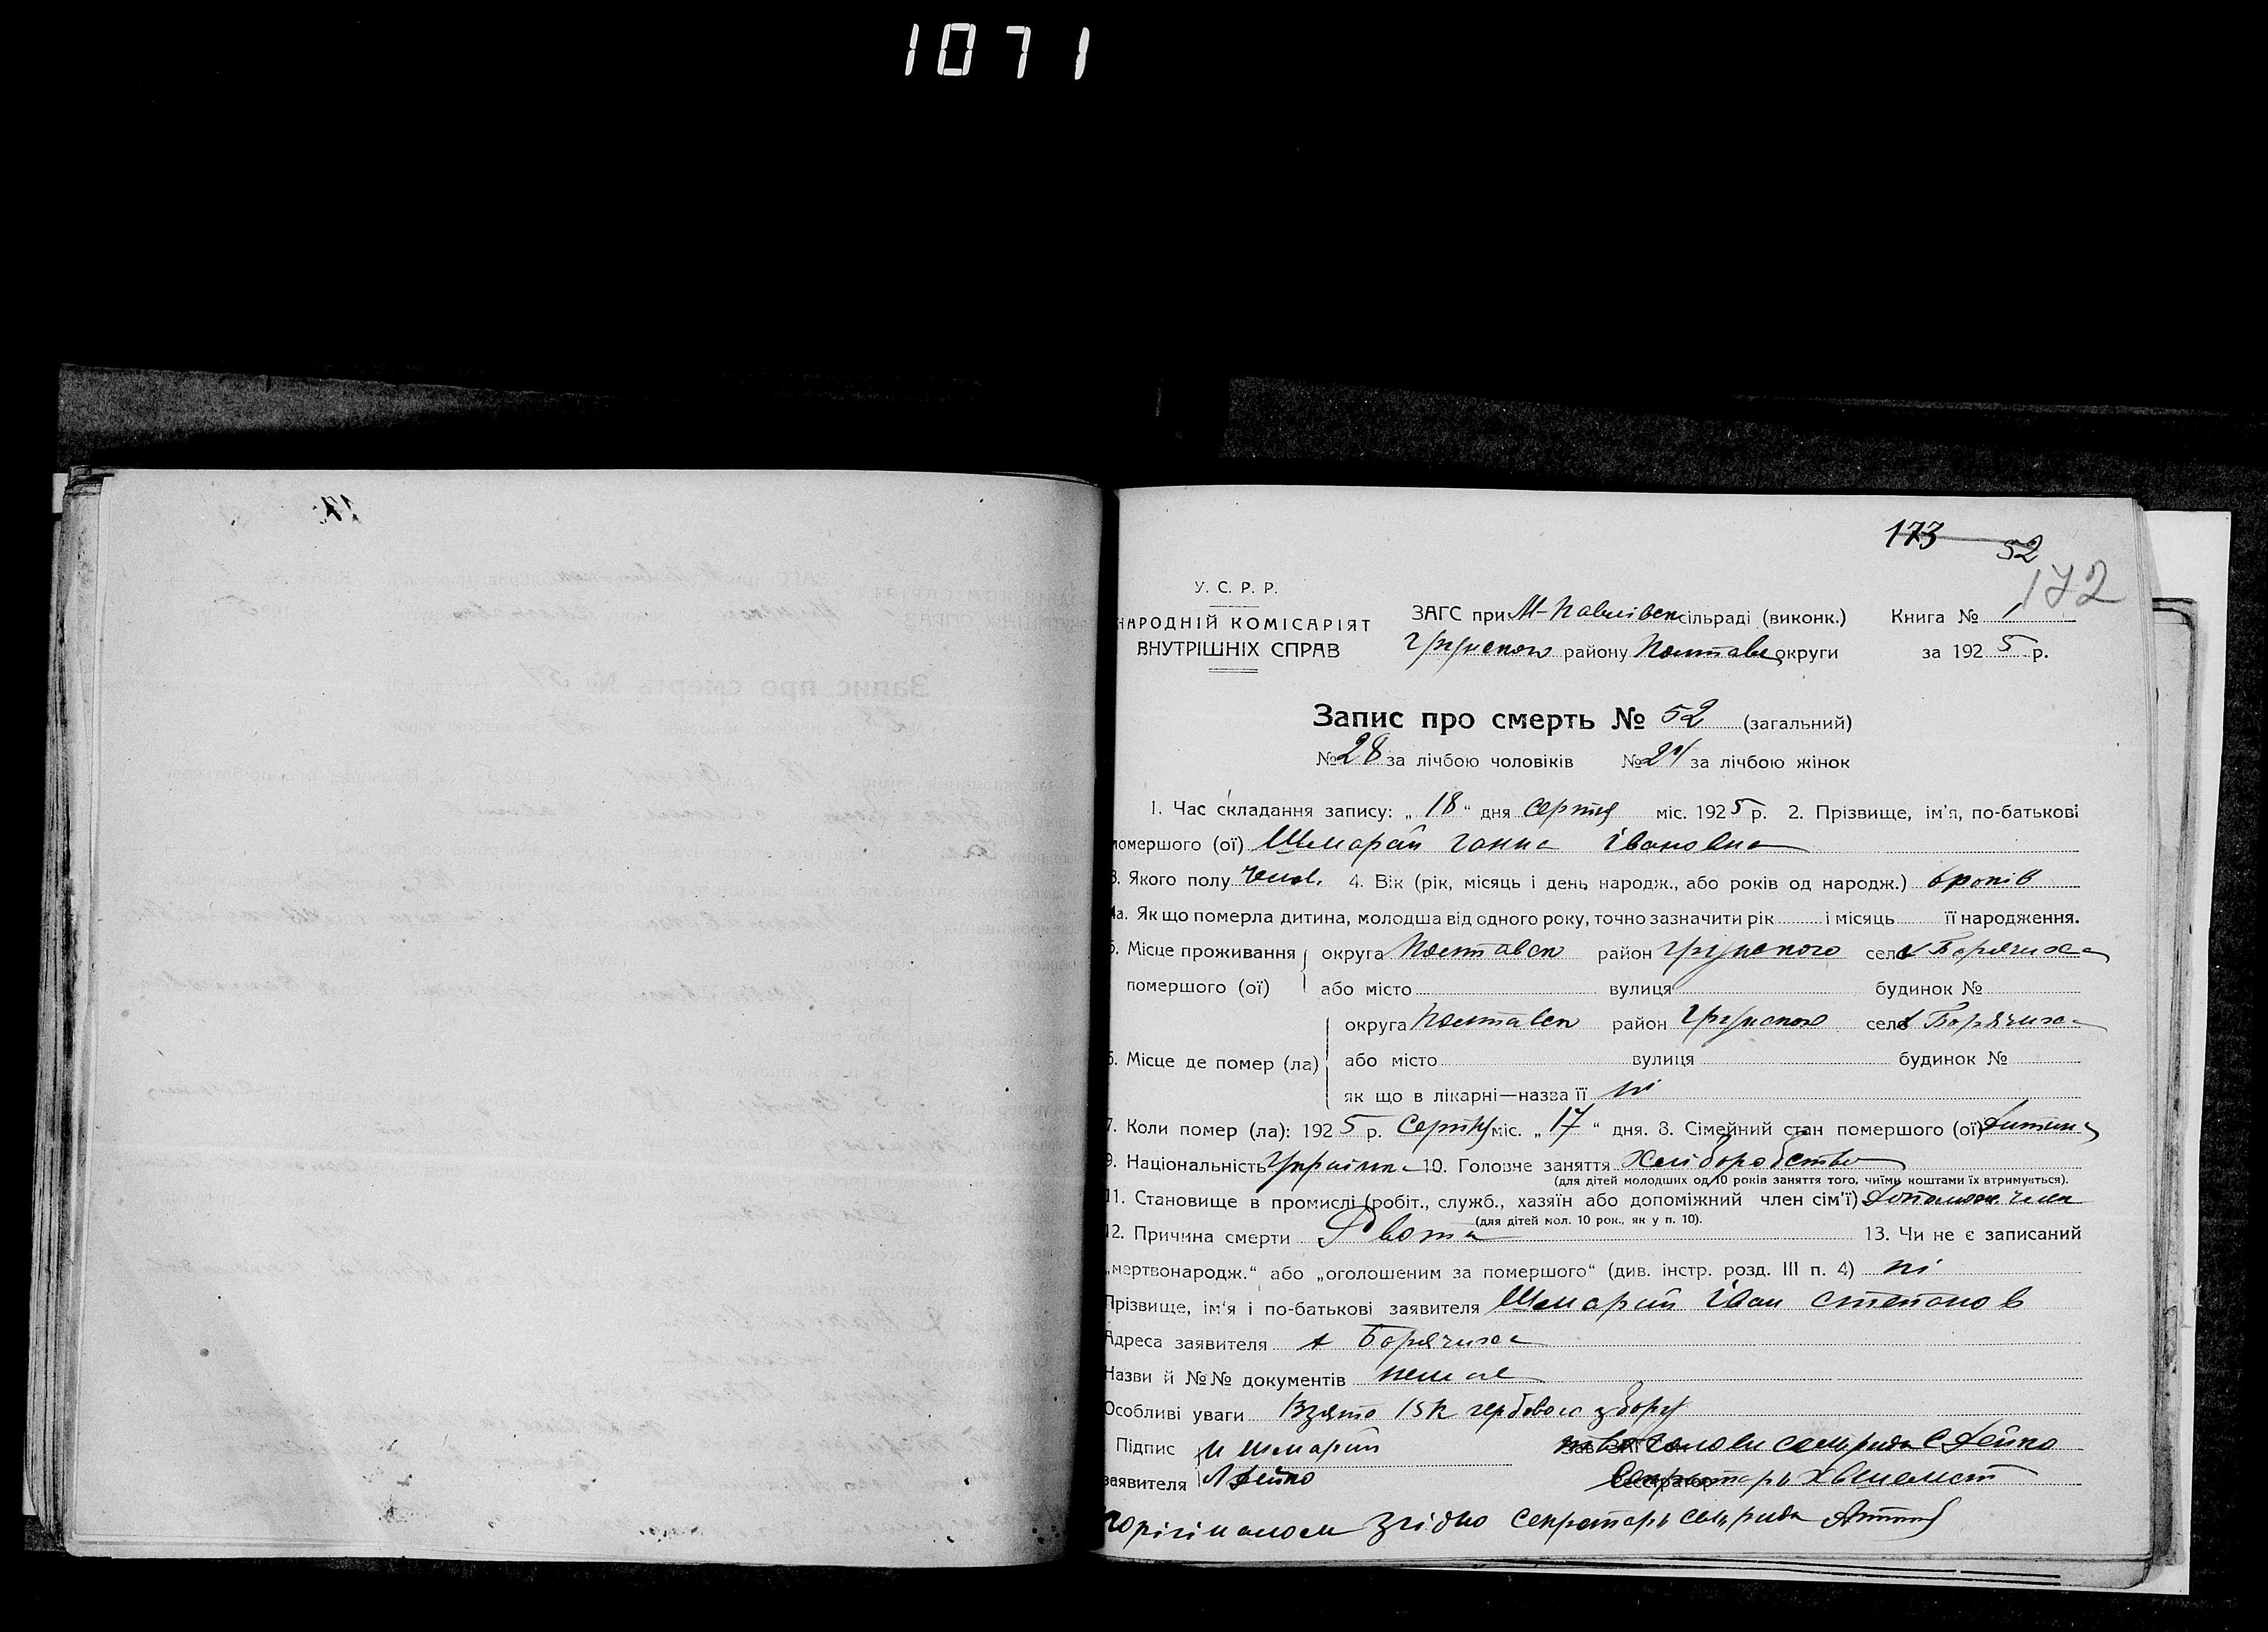 1071
173 52
172
У. С. Р. Р.
НАРОДНІЙ КОМІСАРІЯТ
ВНУТРІШНІХ СПРАВ
ЗАГС при М-Павлівск сільраді (виконк.) Книга № 1
району Полтавс округи за 1925 р.
Запис про смерть № 52 (загальний)
№ 28 за лічбою чоловіків № 24 за лічбою жінок
1. Час складання запису: „18“ дня серпня міс. 1925 р. 2. Прізвище, ім'я, по-батькові
помершого (ої) Шмарай Ганна Івановна
3. Якого полу 4. Вік (рік, місяць і день народж., або років од народж.) 6 років
4а. Як що померла дитина, молодша від одного року, точно зазначити рік і місяць її народження.
5. Місце проживання округа Полтавск район село х Борячиха
помершого (ої) або місто вулиця будинок №
округа Полтавск район село х Борячиха
6. Місце де помер (ла) або місто вулиця будинок №
як що в лікарні—назва її ні
7. Коли помер (ла): 1925 р. серпня міс. „17“ дня. 8. Сімейний стан помершого (ої) дитина
9. Національність Українка 10. Головне заняття Хліборобство
(для дітей молодших од 10 років заняття того, чиїми коштами їх втримується).
11. Становище в промислі (робіт., служб., хазяїн або допоміжний член сім'ї) допомож. член
(для дітей мол. 10 рок., як у п. 10).
12. Причина смерти Рвота 13. Чи не є записаний
„мертвонародж.“ або „оголошеним за помершого“ (див. інстр. розд. III п. 4) ні
Прізвище, ім'я і по-батькові заявителя Шмарай Іван Степанов
Адреса заявителя х Борячиха
Назви й №№ документів немає
Особливі уваги Взято 15 к гербового збору
Підпис И Шмарай голови сельради С Дейко
заявителя Л Дейко Секретарь
горігіналом згідно Секретарь сельради